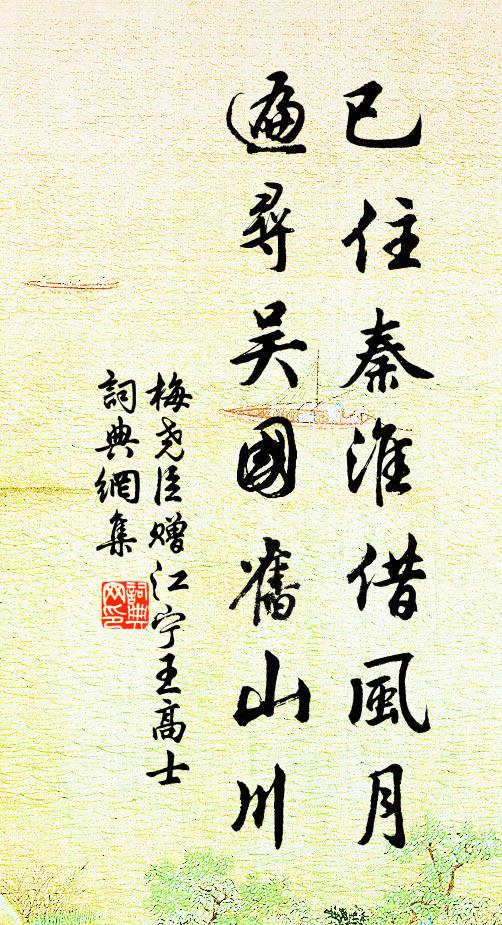 已住秦淮借風月
遍尋吴國舊山川
梅尧臣赠江宁王高士
詞典網集
詞典
网印